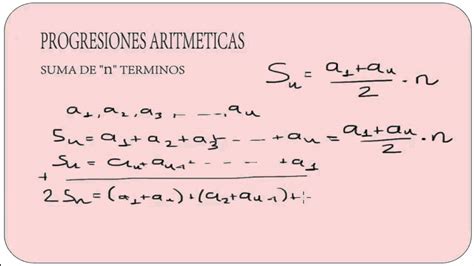 PROGRESIONES ARITMETICAS
SUMA DE "n" TERMINOS
Sn = (a1+an)/2 · n
a1, a2, a3, - - - - -, an
Sn = a1 + a2 + a3 + - - - - + an = (a1+an)/2 · n
Sn = an + an-1 + - - - - - + a1
+
2Sn = (a1+an) + (a2+an-1) +